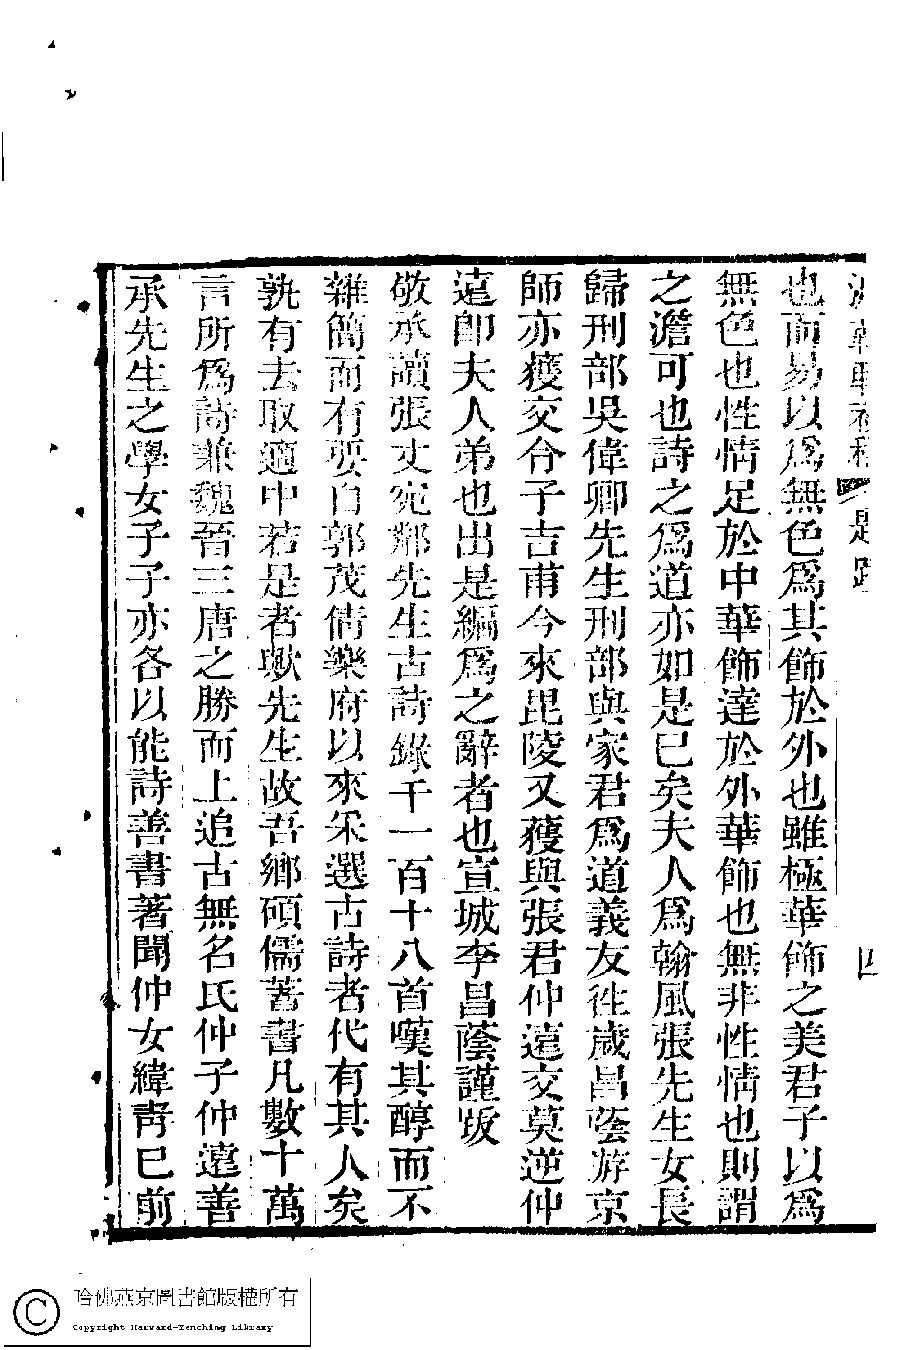 也而易以爲無色爲其飾於外也雖極華飾之美君子以爲
無色也性情足於中華飾達於外華飾也無非性情也則謂
之澹可也詩之爲道亦如是巳矣夫人爲翰風張先生女長
歸刑部吳偉卿先生刑部與家君爲道義友徃歲昌蔭游京
師亦獲交令子吉甫今來毘陵又獲與張君仲遠交莫逆仲
遠卽夫人弟也出是編爲之辭者也宣城李昌蔭謹跋
敬承讀張丈宛鄰先生古詩錄千一百十八首嘆其醇而不
雜簡而有要自郭茂倩樂府以來采選古詩者代有其人矣
孰有去取適中若是者歟先生故吾鄉碩儒著書凡數十萬
言所爲詩兼魏晉三唐之勝而上追古無名氏仲子仲遠善
承先生之學女子子亦各以能詩善書著聞仲女緯青巳前
四
哈佛燕京圖書館版權所有
Copyright Harvard-Yenching Library